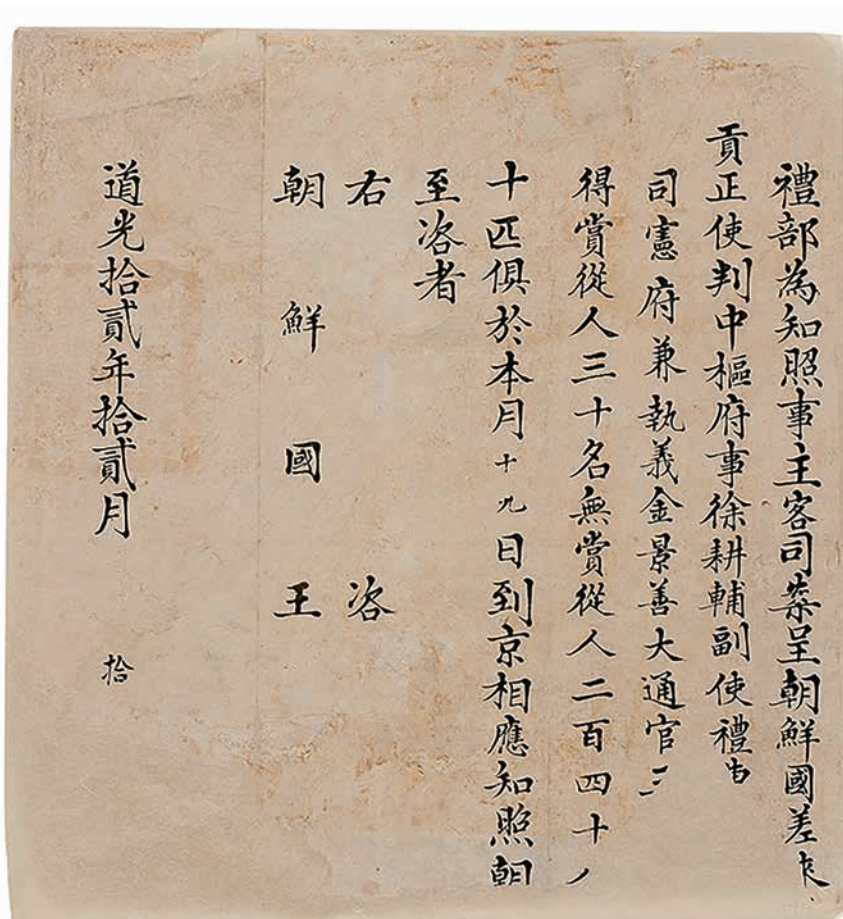 禮部為知照事主客司案呈朝鮮國差
貢正使判中樞府事徐耕輔副使禮
司憲府兼執義金景善大通官三
得賞從人三十名無賞從人二百四十
十匹俱於本月十九日到京相應知照朝
至咨者
右咨
朝鮮國王
道光拾貳年拾貳月拾